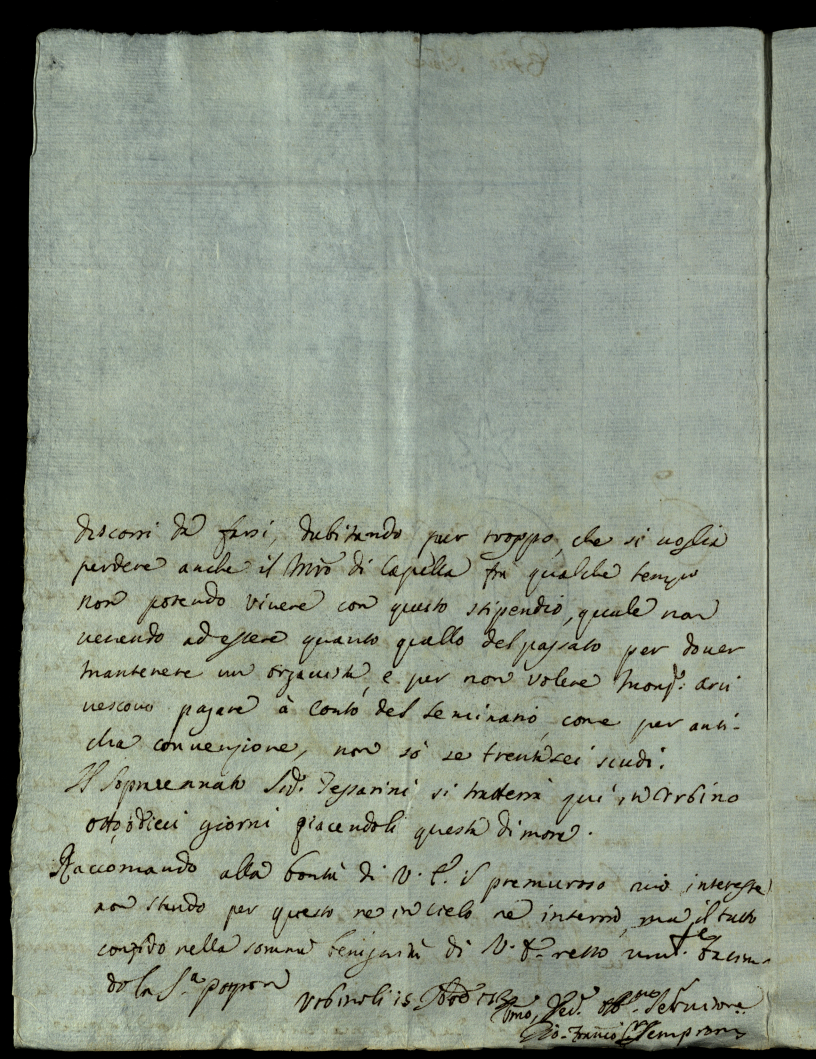 discorsi da farsi, dubitando pur troppo, che si voglia
perdere anche il Mro di Capella fra qualche tempo
non potendo vivere con questo stipendio, quale non
venendo ad essere quanto quello del passato per dover
mantenere un organista, e per non volere Monsr. Arci
vescovo pagare à conto del seminario, come per anti-
cha convenzione, non sò se trentasei scudi.
Il Sopraennato Sig. Tessarini si tratterrà quì in Urbino
otto, ò dieci giorni piacendoli questa dimora.
Raccomando alla bontà di V. E. il premuroso mio interesse
non stando per questo ne in cielo ne in terra, ma il tutto
confido nella somma benignità di V. E. resto umte. bacian-
do la Sa.
Urbino li 15
Umo, Devo. Obbmo Servitore
Gio. Franco